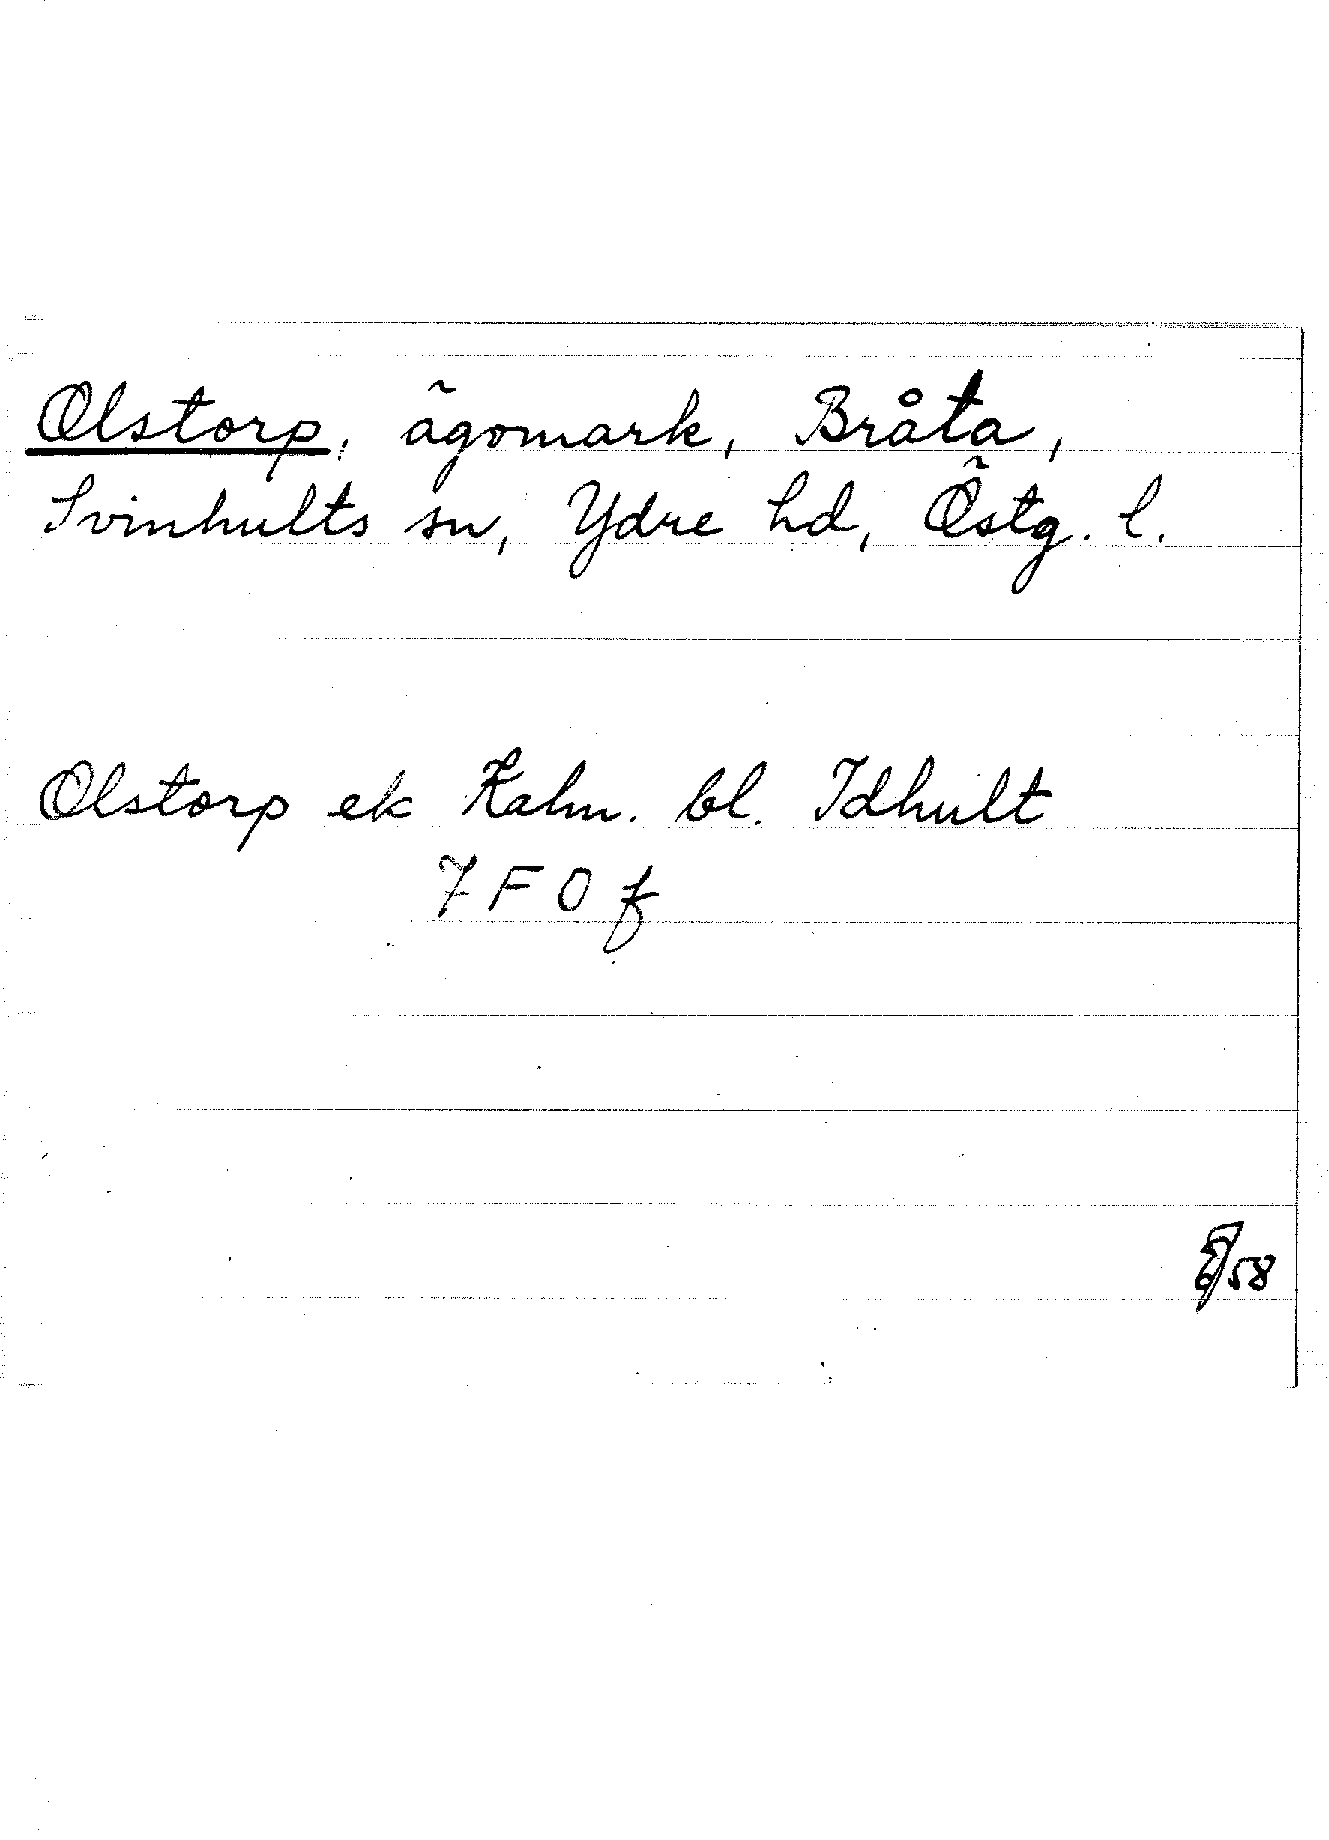 Olstorp, ägomark, Bråta,
Svinhults sn, Ydre hd, Östg. l.
Olstorp ek Kalm. bl. Idhult
7 F 0 f
58